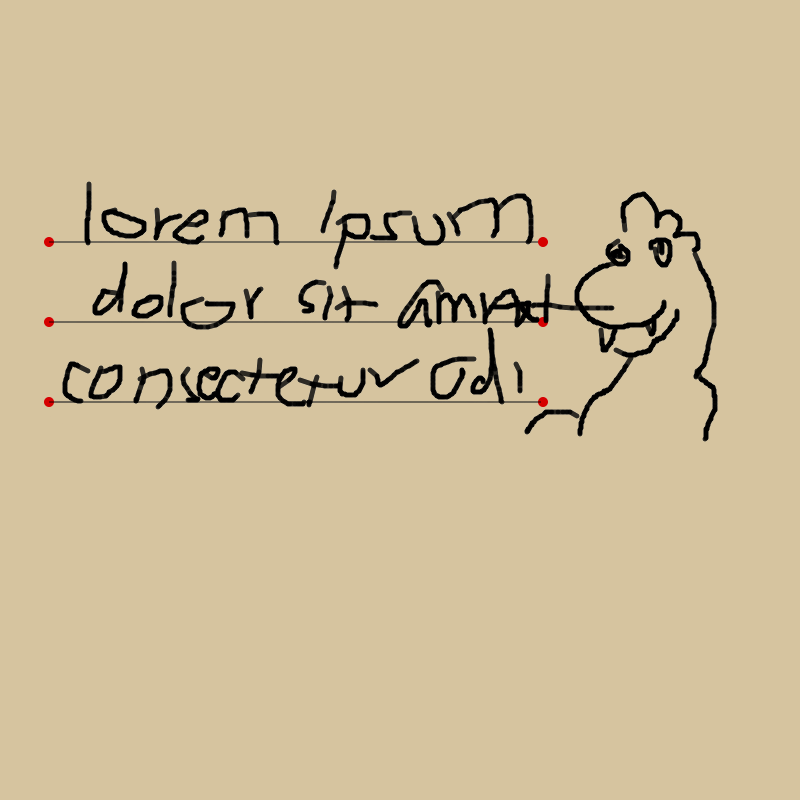 lorem ipsum
dolor sit
consectetur adi